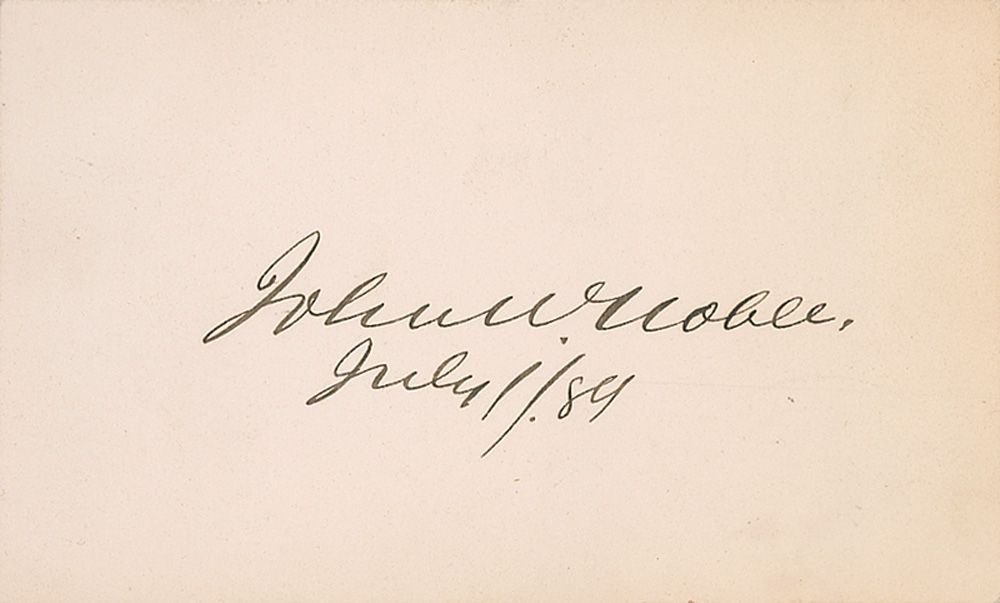 John W. Noble.
July 1/.89